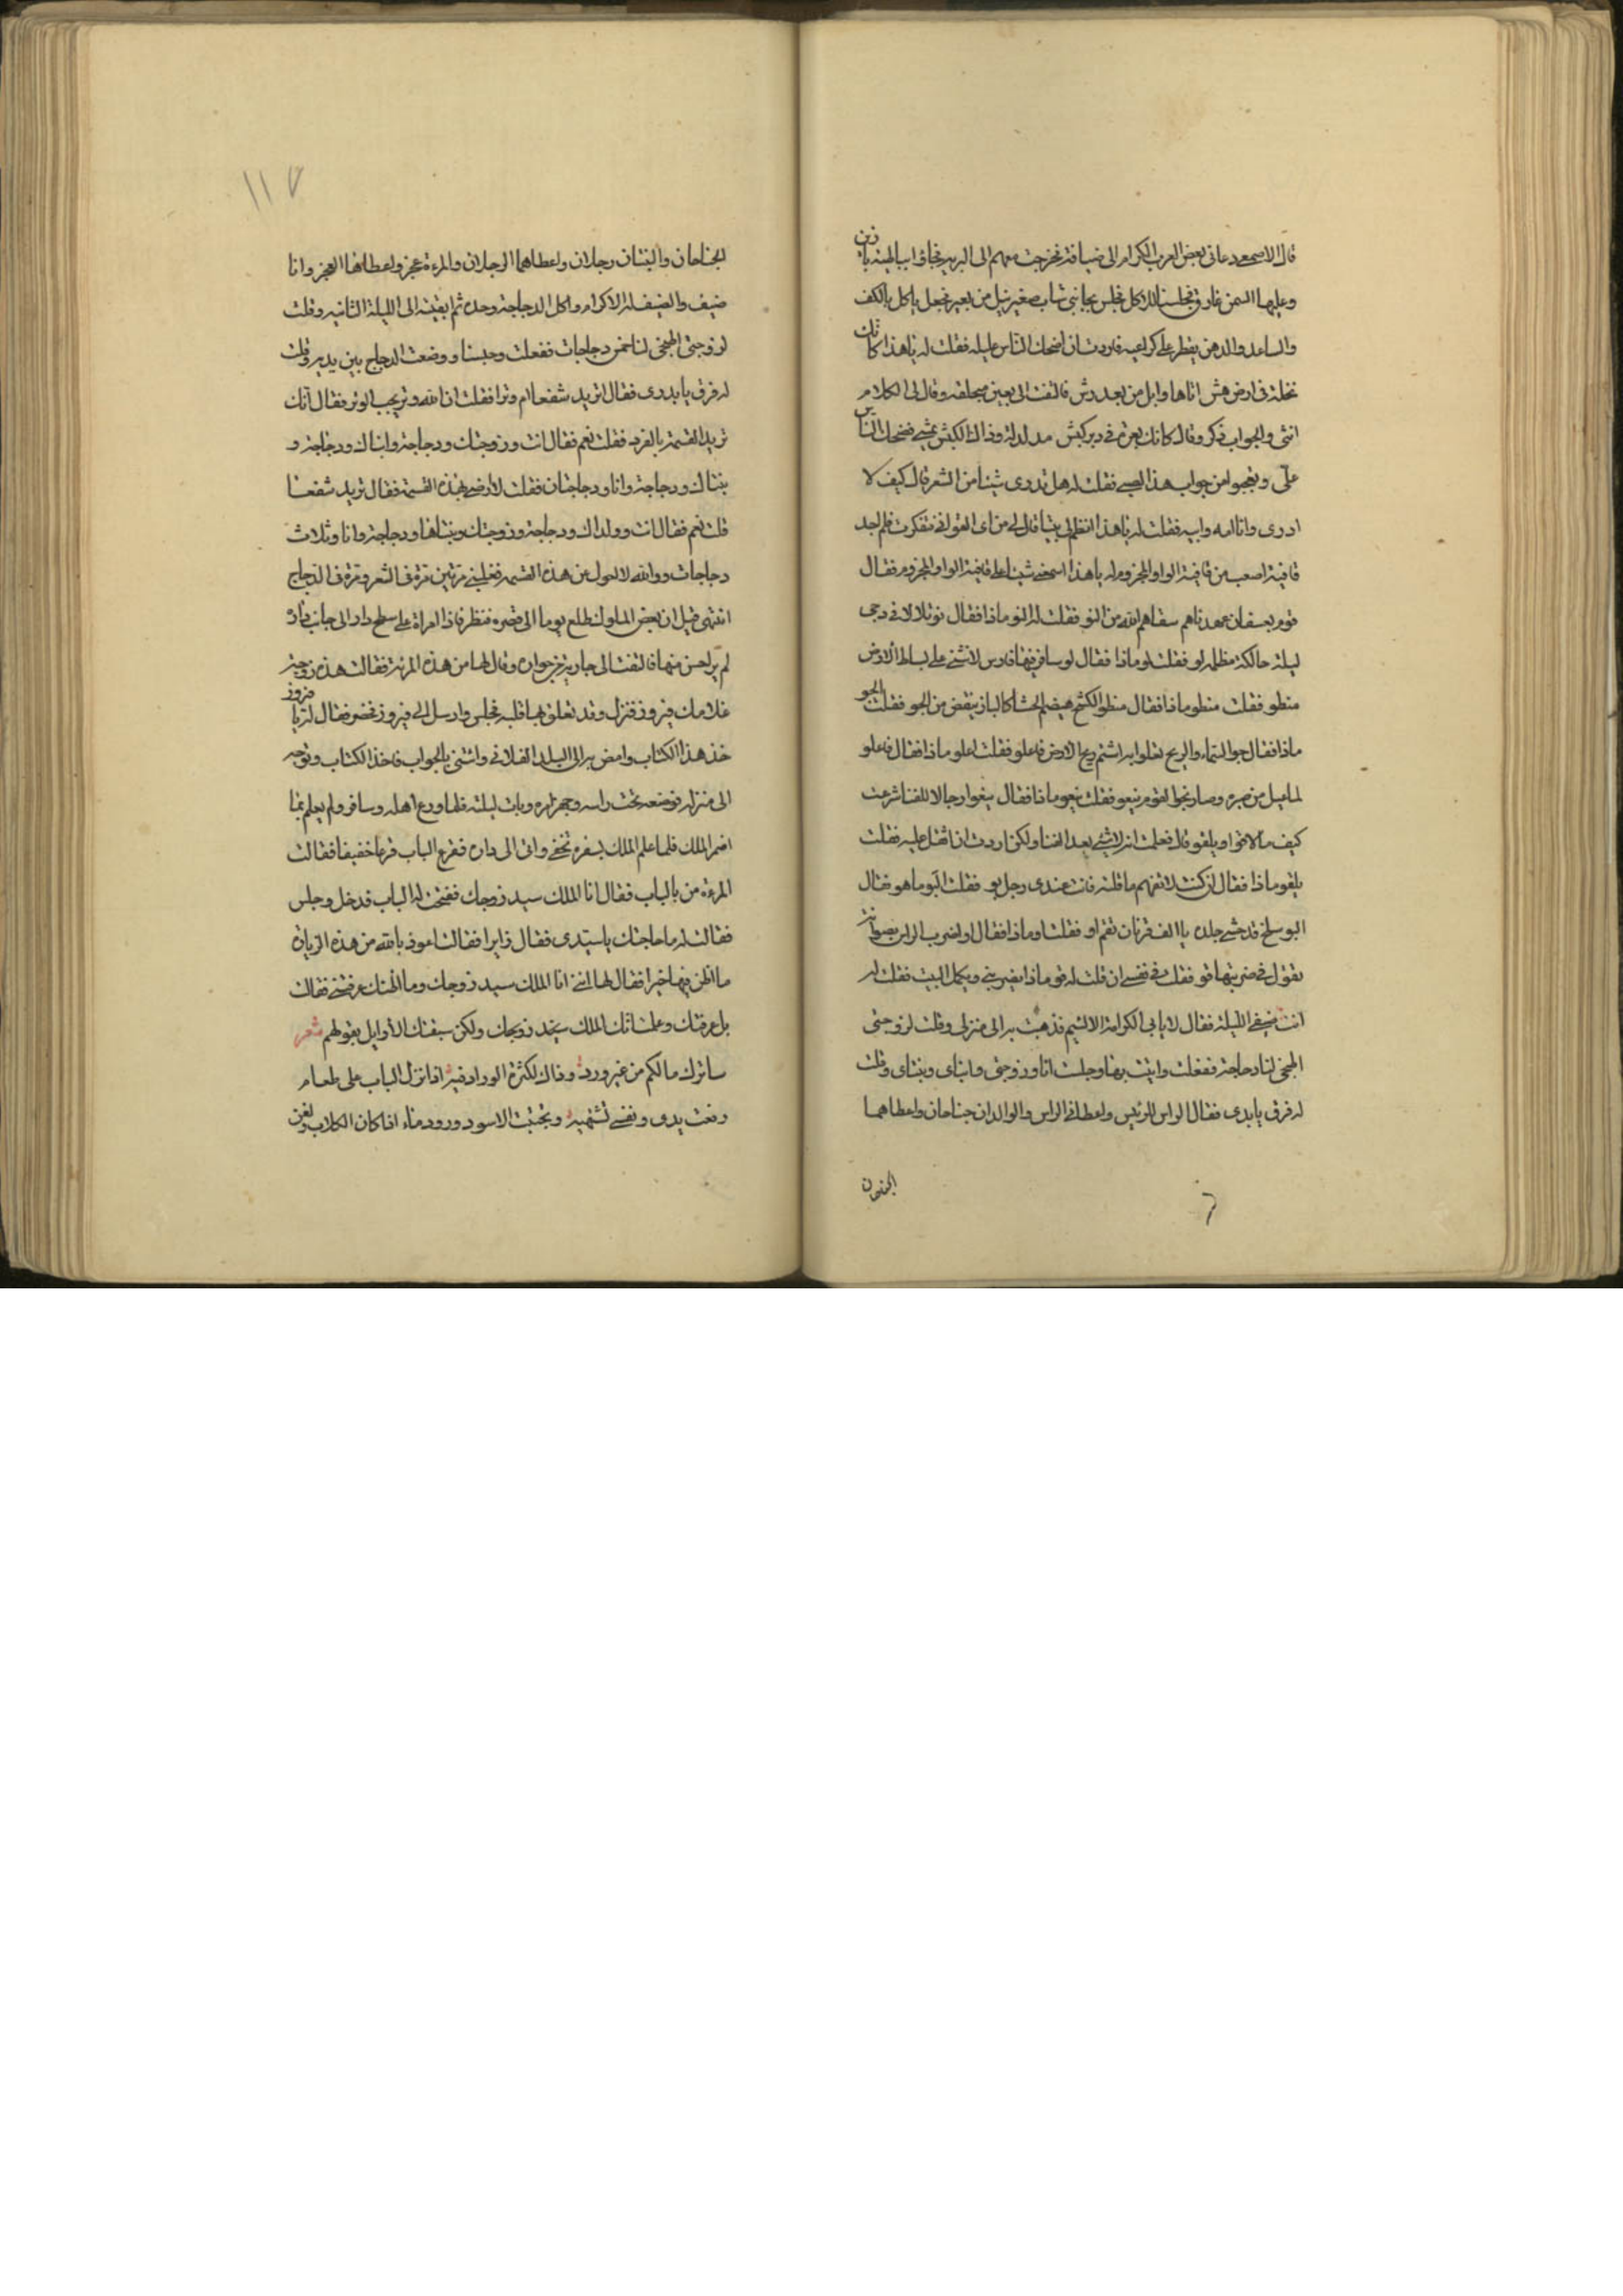 قال الاصمعي دعاني بعض العرب الكرام الى ضيافة فخرجت معهم الى البريه فجاؤا بباطيه باذن
وعليها السمن غارق فجلسنا للاكل فجلس بجانبي شاب صغير نزل من بعير فجعل ياكل بالكف
والساعد والدهن يقطر على كراعيه فاردت ان اضحك الناس عليه فقلت له يا هذا كانك
نخلة في ارض هش اتاها وابل من بعد رش فالتفت الي بعين محلقه وقال لي الكلام
انثى والجواب ذكر وقال كانك بعرة في دبر كبش مدلدلة وذاك الكبش يمشي فضحك الناس
علي وتعجبوا من جواب هذا الصبي فقلت له هل تدري شيئا من الشعر قال كيف لا
ادري وانا امه وابيه فقلت له يا هذا انظم لي بيتا قال لي من اي القوافي فتفكرت فلم اجد
قافية اصعب من قافية الواو المجزومه يا هذا اسمعني شيئا على قافية الواو المجزوم فقال
قوم بعسفان عهدناهم سقاهم الله من النو فقلت له النو ماذا فقال نو تلالا في دجى
ليلة حالكة مظلمه لو فقلت لو ماذا فقال لو سافر فيها فارس لانثنى على بساط الارض
منطو فقلت منطو ماذا فقال منطو الكشح هضيم الحشا كالباز ينقض من الجو فقلت الجو
ماذا فقال جو السماء والريح تعلو به اشتم ريح الارض فاعلو فقلت اعلو ماذا فقال فاعلو
لما عيل من صبره وصار نجوا لقوم ينعو فقلت ينعو ماذا فقال ينعوا رجالا للفنا شرعت
كيف ما لاقوا ويلقو قال فعلمت انه لا شيء بعد الفنا ولكن اردت ان اثقل عليه فقلت
يلقو ماذا فقال ان كنت لا تفهم ما قلته فانت عندي رجل بو فقلت البو ما هو فقال
البو سلخ قد حشي جلده يا الف قرنان تقم او فقلت او ماذا فقال او اضرب الراس بصوانة
تقول في ضربتها قو فقلت في نفسي ان قلت له قو ماذا يضربني ويكمل البيت فقلت له
انت ضيفي الليلة فقال لا يابى الكرامة الا لئيم فذهبت به الى منزلي وقلت لزوجتي
اطبخي لنا دجاجة ففعلت واتيت بها وجلست انا وزوجتي وابناي وبنتاي وقلت
له فرق يا بدوي فقال الراس للرئيس واعطاني الراس والوالدان جناحان واعطاهما
الجنحان
الجناحان والبنتان رجلان واعطاهما الرجلان والمرءة عجز واعطاها العجز وانا
ضيف والضيف له الاكرام واكل الدجاجة وحده ثم ابقيته الى الليلة الثانيه وقلت
لزوجتي اطبخي لنا خمس دجاجات ففعلت وجلسنا ووضعت الدجاج بين يديه وقلت
له فرق يا بدوي فقال تريد شفعا ام وترا فقلت ان الله وتر يحب الوتر فقال كانك
تريد القسمة بالفرد فقلت نعم فقال انت وزوجتك ودجاجة وابناك ودجاجة و
بنتاك ودجاجة وانا ودجاجتان فقلت لا ارضى بهذه القسمة فقال تريد شفعا
قلت نعم فقال انت وولداك ودجاجة وزوجتك وبنتاها ودجاجة وانا وثلاث
دجاجات ووالله لا احول عن هذه القسمه فغلبني مرتين مرة في الشعر ومرة في الدجاج
انتهى قيل ان بعض الملوك طلع يوما الى قصره فنظر فاذا امراة على سطح دار الى جانب داره
لم ير احسن منها فالتفت الى جارية من جواره وقال لها من هذه المرئة فقالت هذه زوجة
غلامك فيروز فنزل وقد تعلق بها قلبه فجلس وارسل الى فيروز فحضر فقال له يا فيروز
خذ هذا الكتاب وامض به الى البلد الفلاني واتني بالجواب فاخذ الكتاب وتوجه
الى منزله فوضعه تحت راسه وجهز امره وبات ليلته فلما ودع اهله وسافر ولم يعلم بما
اضمر الملك فلما علم الملك بسفره تخفى واتى الى داره فقرع الباب قرعا خفيفا فقالت
المرءة من بالباب فقال انا الملك سيد زوجك ففتحت له الباب فدخل وجلس
فقالت له ما حاجتك يا سيدي فقال زايرا فقالت اعوذ بالله من هذه الزيارة
ما اظن فيها خيرا فقال لها انني انا الملك سيد زوجك وما اظنك عرفتني فقالت
بل عرفتك وعلمت انك الملك سيد زوجك ولكن سبقتك الاوايل بقولهم شعر
ساترك مالكم من غير ورد وذاك لكثرة الوراد فيه اذا نزل الذباب على طعام
رفعت يدي ونفسي تشتهيه وتجنبت الاسود ورود ماء اذا كان الكلاب ولغن
١١٧